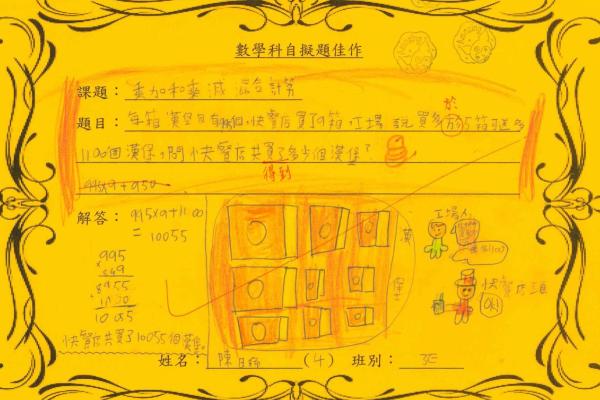 數學科自擬題佳作
課題：乘加和乘減混合計算
題目：每箱漢堡包有995個，快餐店買了9箱，工場說買多於5箱可送多
1100個漢堡，問快餐店共買了多少個漢堡？
得到
995x9+950
解答： 995x9+1100
= 10055
工場人
漢
堡
995
x 9
8955
1100
10055
快餐店主
OK!
快餐店共買了10055個漢堡。
姓名：陳日 (4) 班別：3E